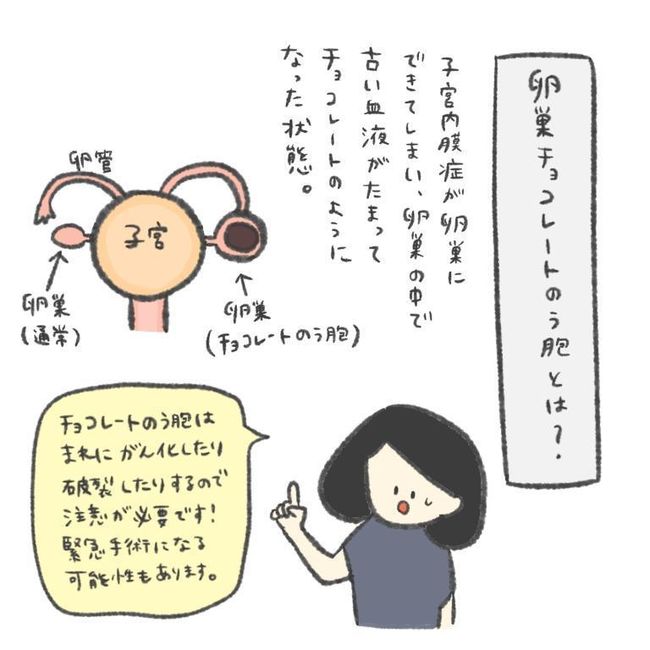 卵巣チョコレートのう胞とは?
子宮内膜症が卵巣に
できてしまい、卵巣の中で
古い血液がたまって
チョコレートのように
なった状態。
卵管
子宮
卵巣
(通常)
卵巣
(チョコレートのう胞)
チョコレートのう胞は
まれにがん化したり
破裂したりするので
注意が必要です!
緊急手術になる
可能性もあります。